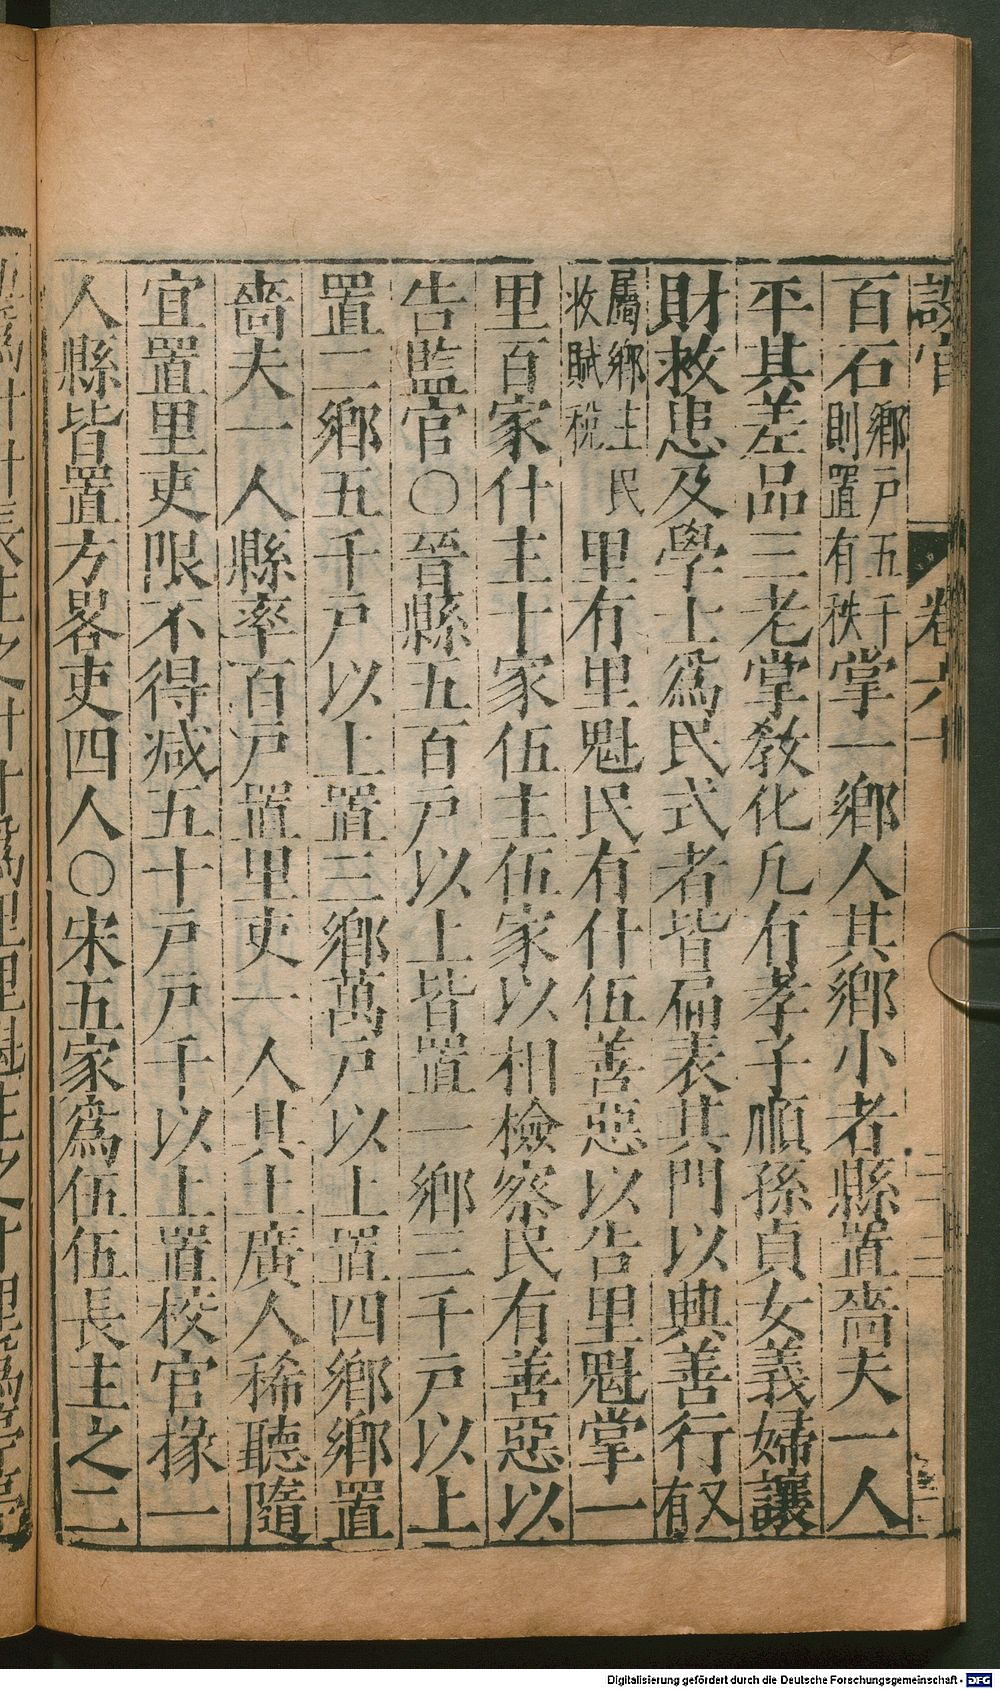 設官 卷六十
百石鄉戶五千則置有秩掌一鄉人其鄉小者縣置嗇夫一人
平其差品三老掌敎化凡有孝子順孫貞女義婦讓
財救患及學士爲民式者皆扁表其門以典善行又有
屬鄉主民收賦稅里有里魁民有什伍善惡以告里魁掌一
里百家什主十家伍主伍家以相檢察民有善惡以
告監官〇晉縣五百戶以上皆置一鄉三千戶以上
置二鄉五千戶以上置三鄉萬戶以上置四鄉鄉置
嗇夫一人縣率百戶置里吏一人其土廣人稀聽隨
宜置里吏限不得减五十戶戶千以上置校官掾一
人縣皆置方畧吏四人〇宋五家爲伍伍長主之二
Digitalisierung gefördert durch die Deutsche Forschungsgemeinschaft - DFG